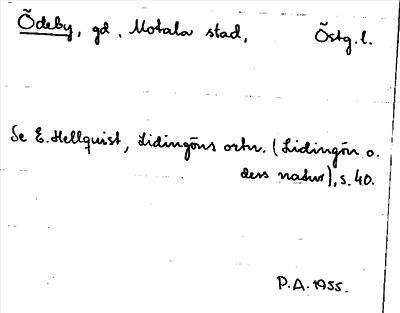 Ödeby, gd. Motala stad, Östg. l.
Se E. Hellquist, Lidingöns ortn. (Lidingön o.
dess natur), s. 40.
P.A. 1955.